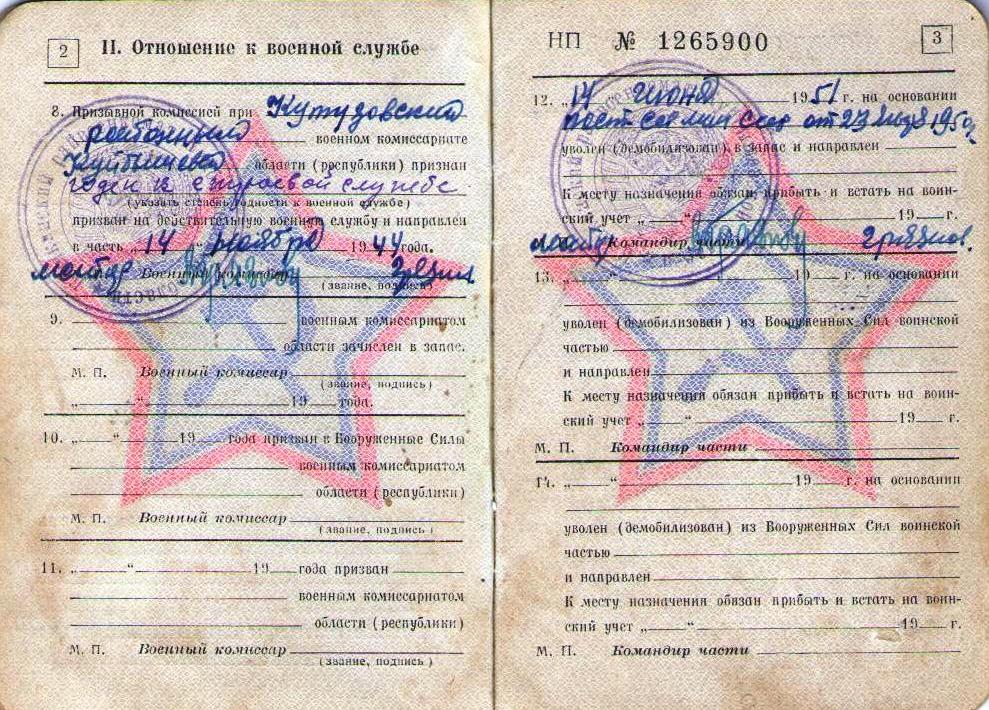 2
II. Отношение к военной службе
8. Призывной комиссией при Кутузовский
районный военном комиссариате
Куйбышевск области (республики) признан
годен к строевой службе
(указать степень годности к военной службе)
призван на действительную военную службу и направлен
в часть „14“ ноября 1944 года.
майор Военный комиссар
(звание, подпись)
9. военным комиссариатом
области зачислен в запас.
М. П. Военный комиссар
(звание, подпись)
„ “ 19 года.
10. „ “ 19 года призван в Вооруженные Силы
военным комиссариатом
области (республики)
М. П. Военный комиссар
(звание, подпись)
11. „ “ 19 года призван
военным комиссариатом
области (республики)
М. П. Военный комиссар
(звание, подпись)
НП № 1265900
3
12. „14 июня 1951 г. на основании
пост сов мин Союз от 23 1950.
уволен (демобилизован) в запас и направлен
К месту назначения обязан прибыть и встать на воин-
ский учет „ “ 19 г.
майор Командир части
13. 19 г. на основании
уволен (демобилизован) из Вооруженных Сил воинской
частью
и направлен
К месту назначения обязан прибыть и встать на воин-
ский учет „ “ 19 г.
М. П. Командир части
14. „ “ 19 г. на основании
уволен (демобилизован) из Вооруженных Сил воинской
частью
и направлен
К месту назначения обязан прибыть и встать на воин-
ский учет „ “ 19 г.
М. П. Командир части